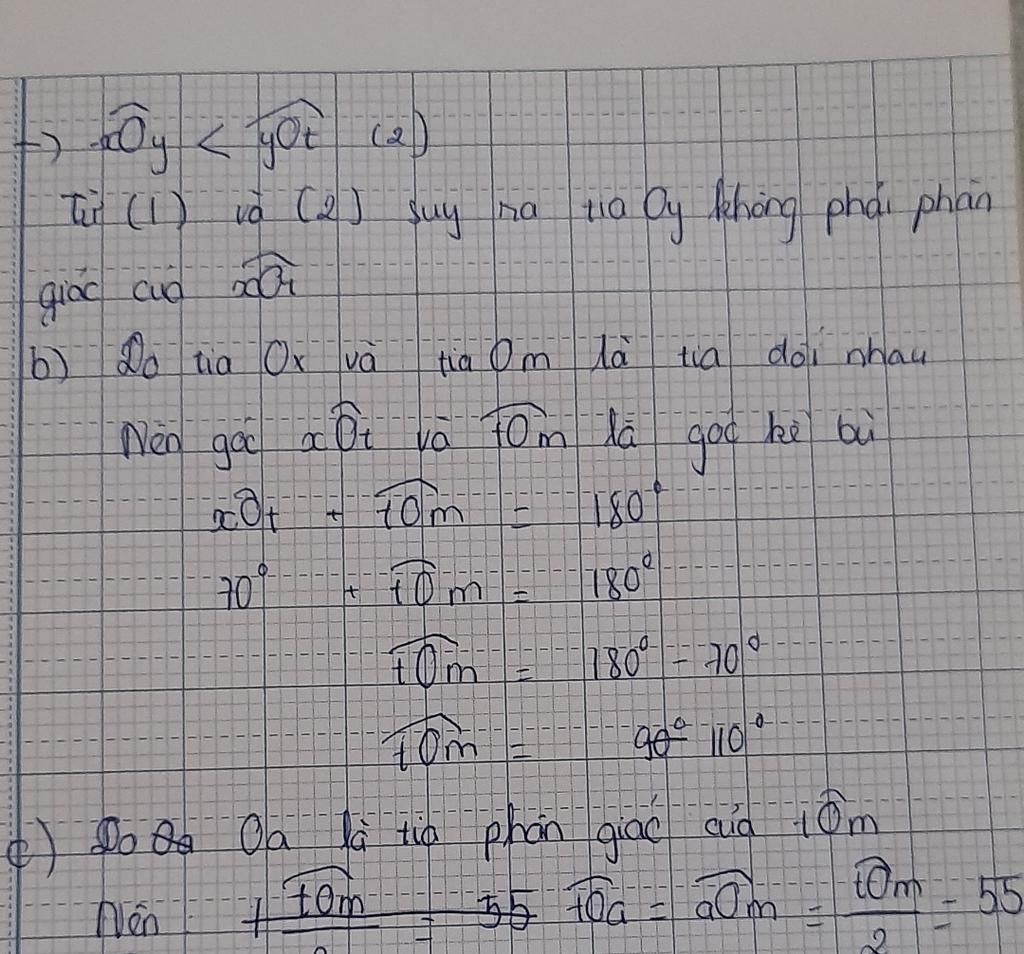 →) xÔy < yÔt (2)
Từ (1) và (2) suy ra tia Oy không phải phân
giác của xÔt
b) Do tia Ox và tia Om là tia đối nhau
Nên góc xÔt và tÔm là góc kề bù
xÔt + tÔm = 180°
70° + tÔm = 180°
tÔm = 180° - 70°
tÔm = 90° 110°
c) Do Oa Oa là tia phân giác của tÔm
Nên tÔm/2 = 55 tÔa = aÔm = tÔm/2 = 55